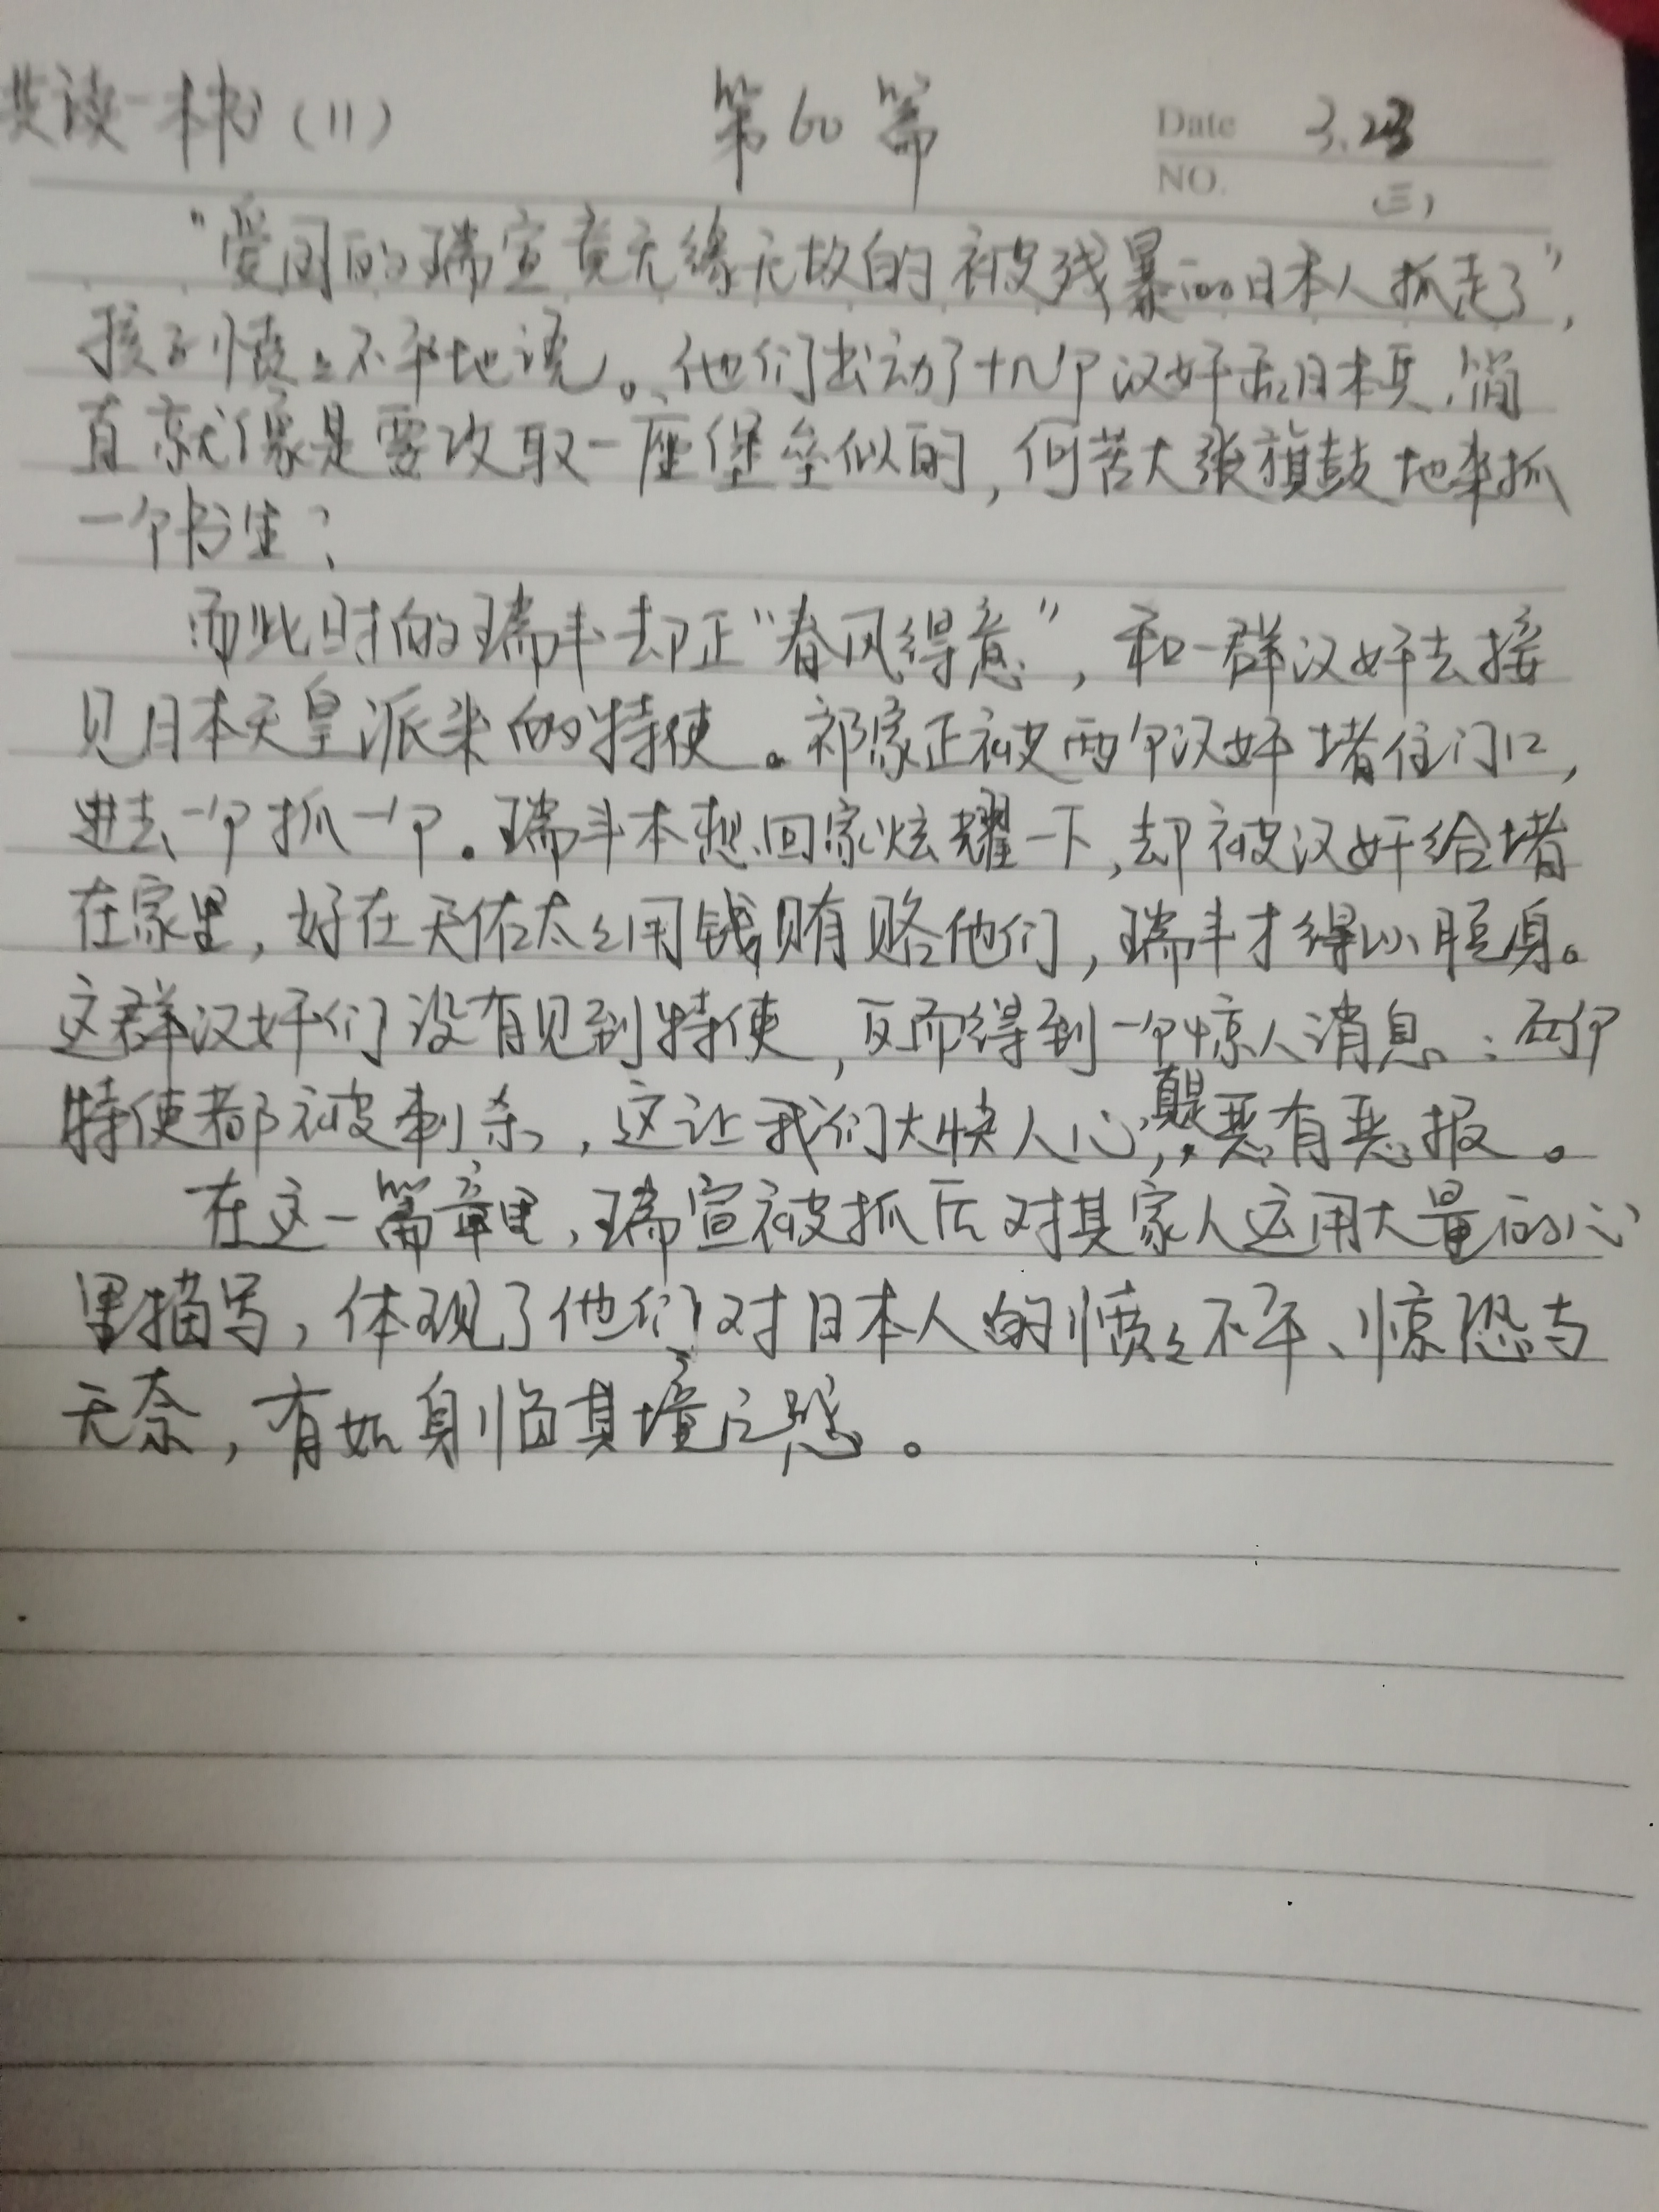 共读一本书（11） 第60篇 Date 3.23
NO. （三）
“爱国的瑞宣竟无缘无故的被残暴的日本人抓走了”，
孩子愤愤不平地说。他们出动了十几个汉奸和日本兵，简
直就像是要攻取一座堡垒似的，何苦大张旗鼓地来抓
一个书生？
而此时的瑞丰却正“春风得意”，和一群汉奸去接
见日本天皇派来的特使。祁家正被两个汉奸堵住门口，
进去一个抓一个。瑞丰本想回家炫耀一下，却被汉奸给堵
在家里，好在天佑太太用钱贿赂他们，瑞丰才得以脱身。
这群汉奸们没有见到特使，反而得到一个惊人消息：两个
特使都被刺杀，这让我们大快人心，真是恶有恶报。
在这一篇章里，瑞宣被抓后对其家人运用大量的心
里描写，体现了他们对日本人的愤愤不平、惊恐与
无奈，有如身临其境之感。